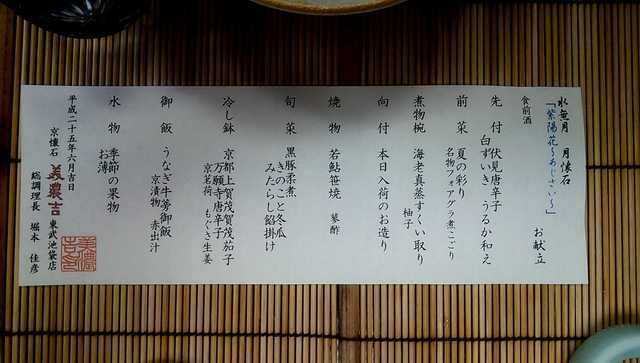 水無月 月懐石
「紫陽花～あじさい～」
お献立
食前酒
先付 伏見唐辛子
白ずいき うるか和え
前菜 夏の彩り
名物フォアグラ煮こごり
煮物椀 海老真蒸すくい取り
柚子
向付 本日入荷のお造り
焼物 若鮎笹焼 蓼酢
旬菜 黒豚柔煮
きのこと冬瓜
みたらし餡掛け
冷し鉢 京都上賀茂賀茂茄子
万願寺唐辛子
京茗荷 もぐさ生姜
御飯 うなぎ牛蒡御飯
京漬物 赤出汁
水物 季節の果物
お薄
平成二十五年六月吉日
京懐石 美濃吉 東武池袋店
総調理長 堀本 佳彦
美濃
吉